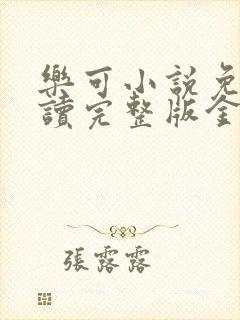 樂可小說免
讀完整版全
張露露